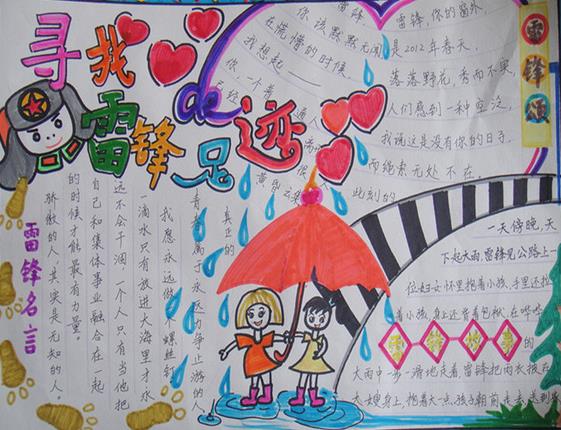 寻找
雷锋足迹
de
雷锋颂
雷锋,
你该默默无闻
在慌懵的时候
我想起
你,一个青
雷锋,你的窗外,
是2012年春天,
落落野花,秀而不果,
人们感到一种空泛,
我说这是没有你的日子,
而绳索无处不在,
此刻的
真正的
青春,属于永远力争上游的人
我愿永远做 螺丝钉
一滴水只有放进大海里才永
远不会干涸 一个人只有当他把
自己和集体事业融合在一起
的时候才能最有力量。
骄傲的人,其实是无知的人。
雷锋名言
一天傍晚,天
下起大雨雷锋见公路上一
位妇女怀里抱着小孩,手里还拉
着小孩,身上还背着包袱,在哗哗
的
雷锋故事
大雨中一步一滑地走着,雷锋把雨衣披在
大嫂身上,抱着大一点孩子朝前走去,送到家